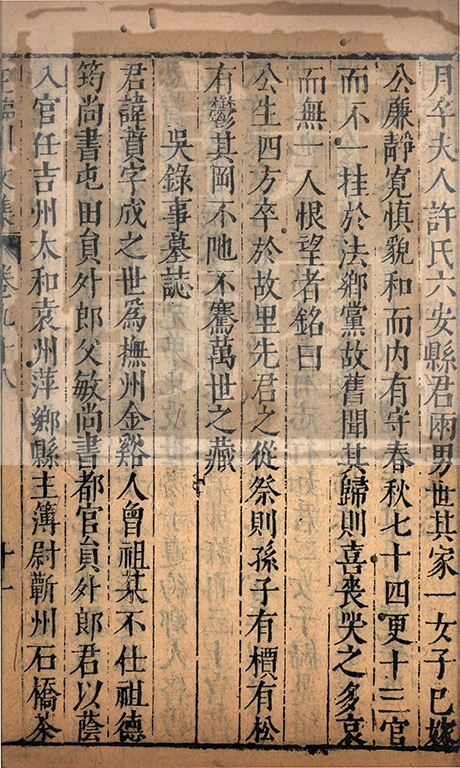 月卒夫人許氏六安縣君兩男世其家一女子已嫁
公廉靜寬慎貌和而内有守春秋七十四更十三官
而不一挂於法鄉黨故舊聞其歸則喜喪哭之多哀
而無一人恨望者銘曰
公生四方卒於故里先君之從祭則孫子有檟有松
有鬱其岡不阤不騫萬世之藏
吳錄事墓誌
君諱蕡字成之世爲撫州金谿人曾祖某不仕祖德
筠尚書屯田員外郎父敏尚書都官員外郎君以蔭
入官任吉州太和袁州萍鄉縣主簿尉蘄州石橋茶
王臨川文集 卷九十八 十一